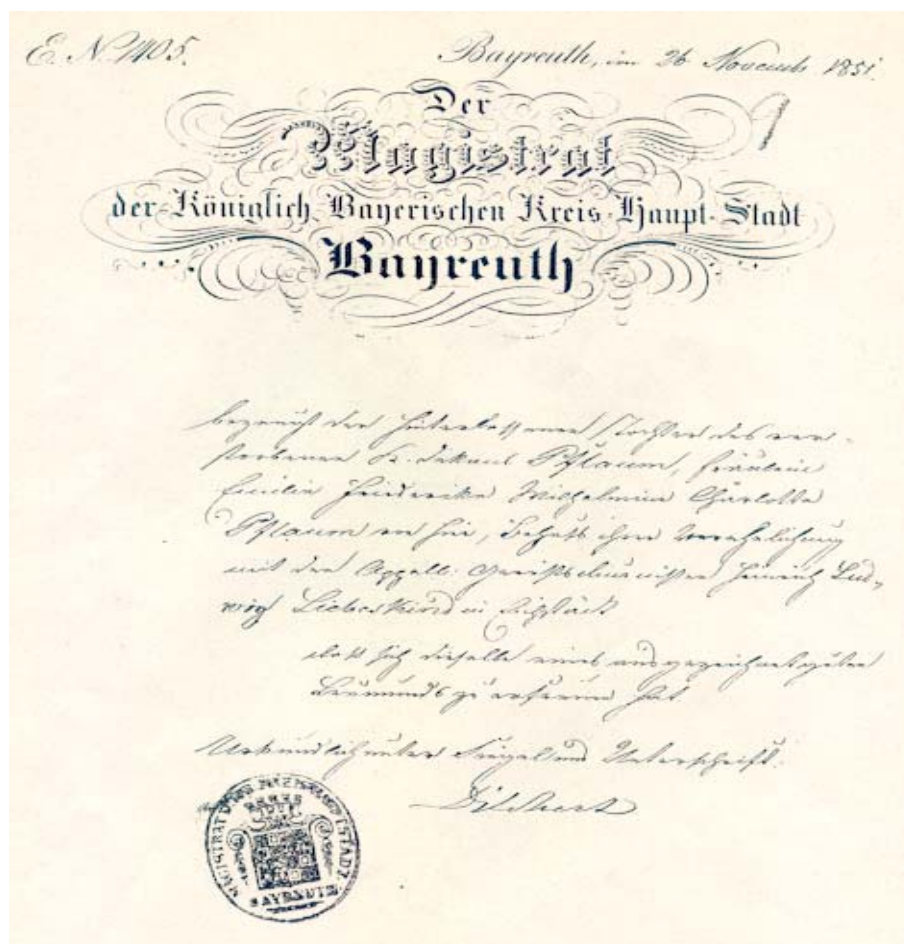 E. N. 1405.
Bayreuth, im 26 Novemb. 1851.
Der
Magistrat
der Königlich Bayerischen Kreis-Haupt-Stadt
Bayreuth
bezeugt der hinterlassenen Tochter des ver-
storbenen K. Dekans Pflaum, Fräulein
Cecilie Friederike Wilhelmine Charlotte
Pflaum von hier, Behufs ihrer Verehelichung
mit dem Appell. Gerichts Heinrich Lud-
wig Liebeskind in Eichstädt
daß sich dieselbe eines ausgezeichnet guten
Leumunds zu erfreuen hat.
Urkundlich unter Siegel und Unterschrift.
MAGISTRAT
BAYREUTH